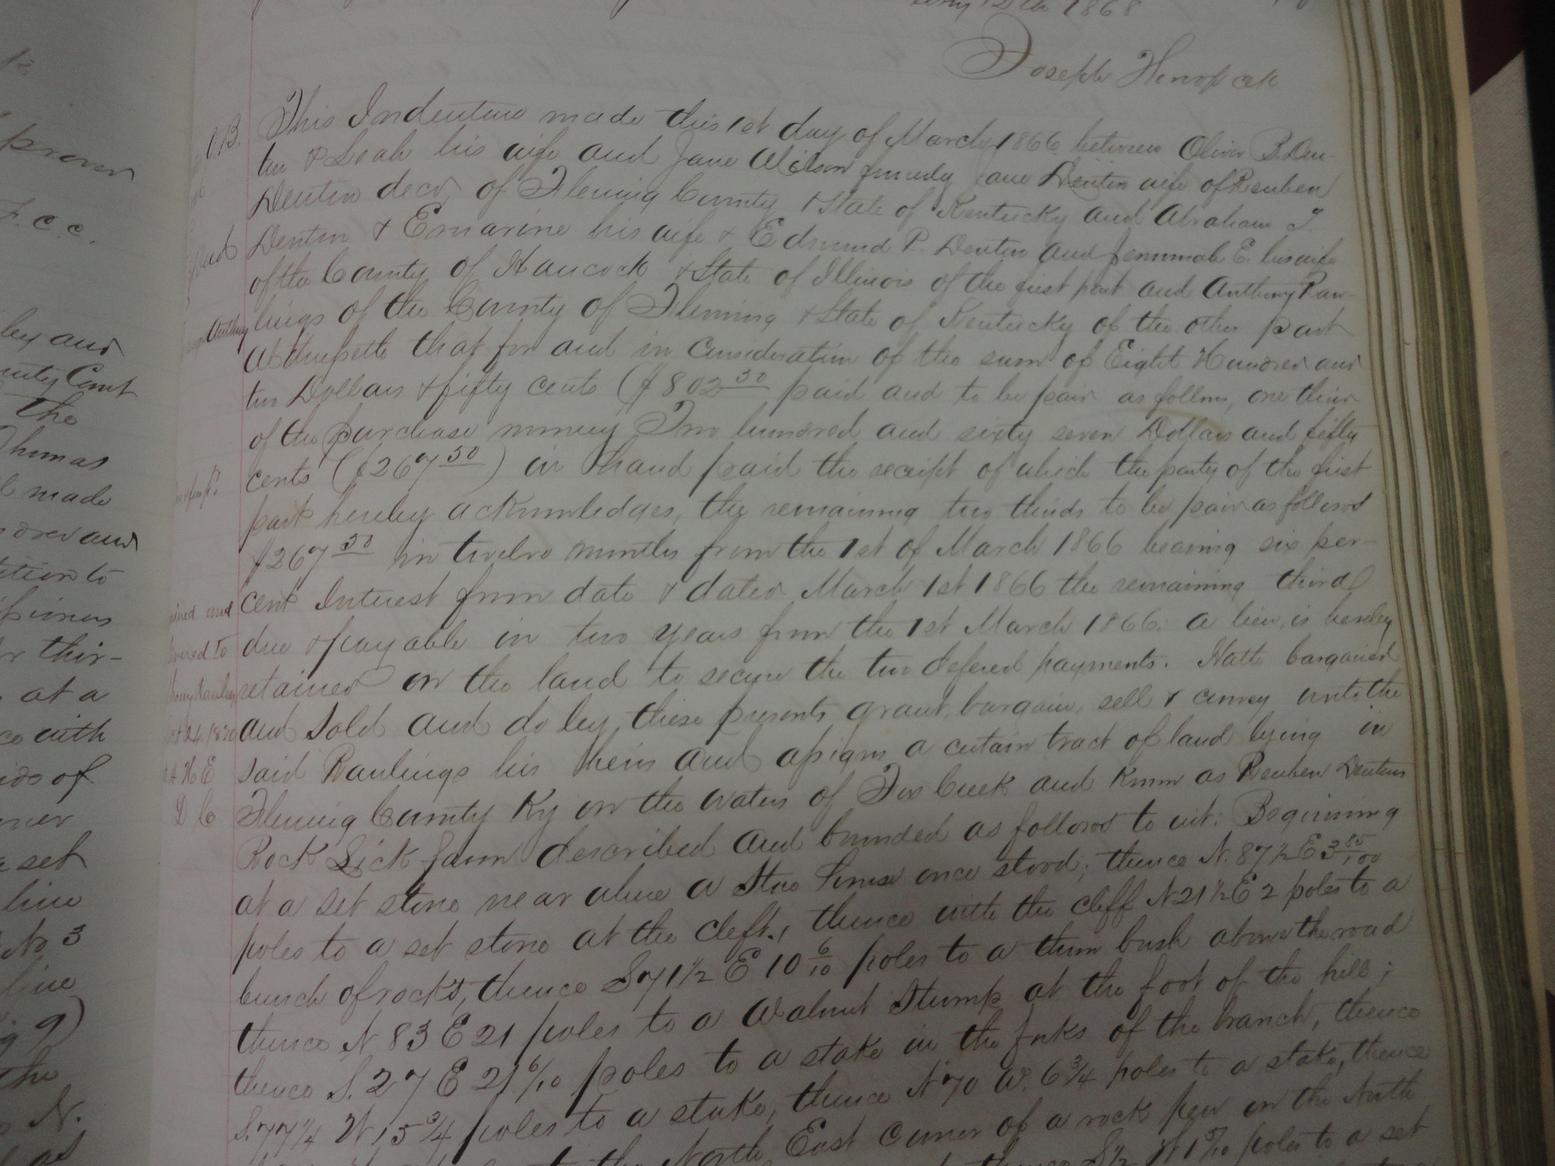 1868
Joseph
This Indenture made this 1st day of March 1866 between Oliver B. Den-
ton & Leah his wife and Jane Wilson formerly Jane Denton wife of Reuben
Denton decd, of Fleming County & State of Kentucky and Abraham T.
Denton & Emarine his wife & Edmund P. Denton and Jemimah E. his wife
of the County of Hancock & State of Illinois of the first part and Anthony Raw-
lings of the County of Fleming & State of Kentucky of the other part
Witnesseth that for and in consideration of the sum of Eight Hundred and
two Dollars & fifty cents ($802 50 paid and to be paid as follows, one third
of the purchase money Two hundred and sixty seven Dollars and fifty
cents ($267 50) in hand paid the receipt of which the party of the first
part hereby acknowledges, the remaining two thirds to be paid as follows
$267 50 in twelve months from the 1st of March 1866 bearing six per-
cent Interest from date & dated March 1st 1866 the remaining third
due & payable in two years from the 1st March 1866. a lien is hereby
retained on the land to secure the two defered payments. Hath bargained
and sold and do by these presents grant, bargain, sell & convey unto the
said Rawlings his heirs and assigns a certain tract of land lying in
Fleming County Ky on the waters of Fox Creek and known as Reuben Dentons
Rock Lick farm described and bounded as follows to wit: Beginning
at a set stone near where a Still house once stood; thence N. 87½ E 3 85/100
poles to a set stone at the cleft, thence with the cliff N 21½ E 2 poles to a
bunch of rocks, thence S 71½ E 10 6/10 poles to a thorn bush above the road
thence N 83 E 21 poles to a Walnut Stump at the foot of the hill;
thence S. 27 E 21 6/10 poles to a stake in the forks of the branch, thence
S. 77¼ W 15¾ poles to a stake, thence N 70 W. 6¾ poles to a stake, thence
the North East corner of a rock pen on the North
thence S½ W 1 5/10 poles to a set
O.B.
and
Anthony
and
to
1870
D C
F. C. C.
and
Court
the
Thomas
made
and
to
or thir-
at a
with
of
a set
line
No 3
line
9)
the
N.
as